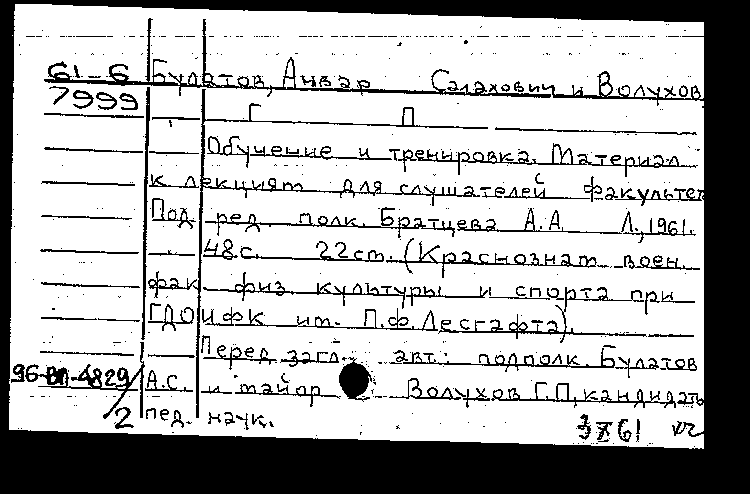 61-6 Булатов, Анвар Салахович и Волухов,
7999 Г П
Обучение и тренировка. Материал
к лекциям для слушателей факультет
Под ред. полк. Братцева А.А Л., 1961.
48с. 22см. (Краснознам воен.
фак физ. культуры и спорта при
ГДОИФК им. П.Ф. Лесгафта).
Перед загл. авт.: подполк. Булатов
96-ВП-4829/2 А.С. и майор Волухов Г.П, кандидаты
пед. наук.